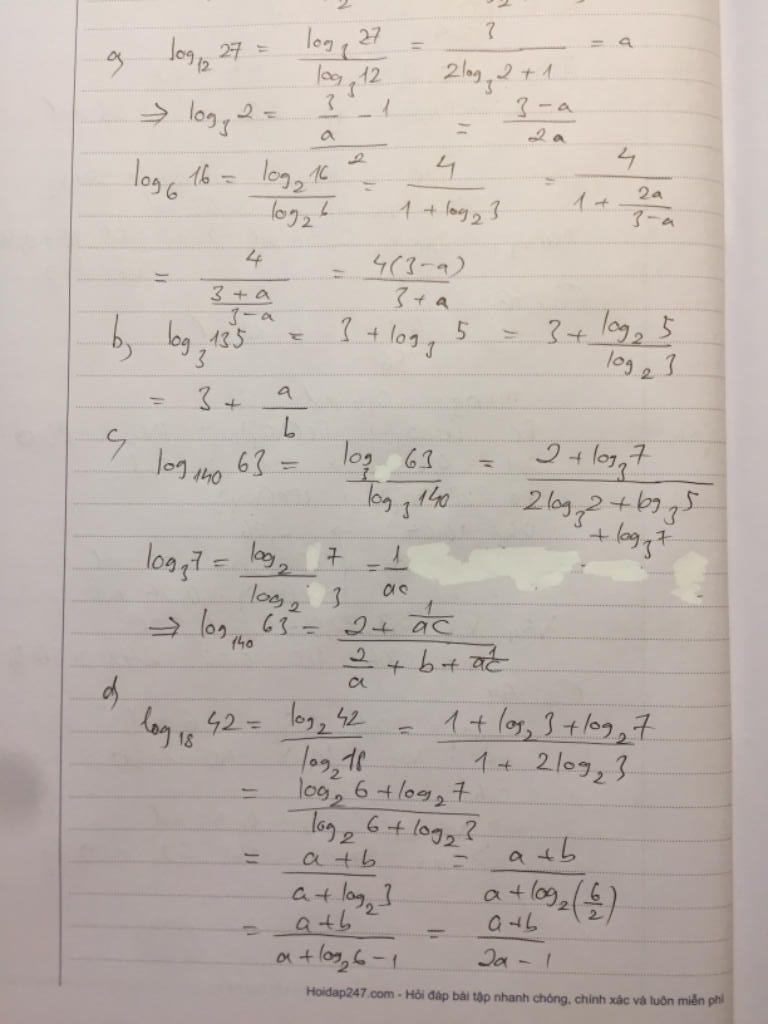 a) log₁₂ 27 = log₃ 27 / log₃ 12 = 3 / (2log₃ 2 + 1) = a
⇒ log₃ 2 = (3/a - 1) / 2 = (3 - a) / 2a
log₆ 16 = log₂ 16 / log₂ 6 = 4 / (1 + log₂ 3) = 4 / (1 + 2a/(3-a))
= 4 / ((3 + a)/(3 - a)) = 4(3-a) / (3 + a)
b, log₃ 135 = 3 + log₃ 5 = 3 + log₂ 5 / log₂ 3
= 3 + a/b
c,
log₁₄₀ 63 = log₃ 63 / log₃ 140 = (2 + log₃ 7) / (2log₃ 2 + log₃ 5 + log₃ 7)
log₃ 7 = log₂ 7 / log₂ 3 = 1/ac
⇒ log₁₄₀ 63 = (2 + 1/ac) / (2/a + b + 1/ac)
d)
log₁₈ 42 = log₂ 42 / log₂ 18 = (1 + log₂ 3 + log₂ 7) / (1 + 2log₂ 3)
= (log₂ 6 + log₂ 7) / (log₂ 6 + log₂ 3)
= (a + b) / (a + log₂ 3) = (a + b) / (a + log₂(6/2))
= (a+b) / (a + log₂ 6 - 1) = (a+b) / (2a - 1)
Hoidap247.com - Hỏi đáp bài tập nhanh chóng, chính xác và luôn miễn phí